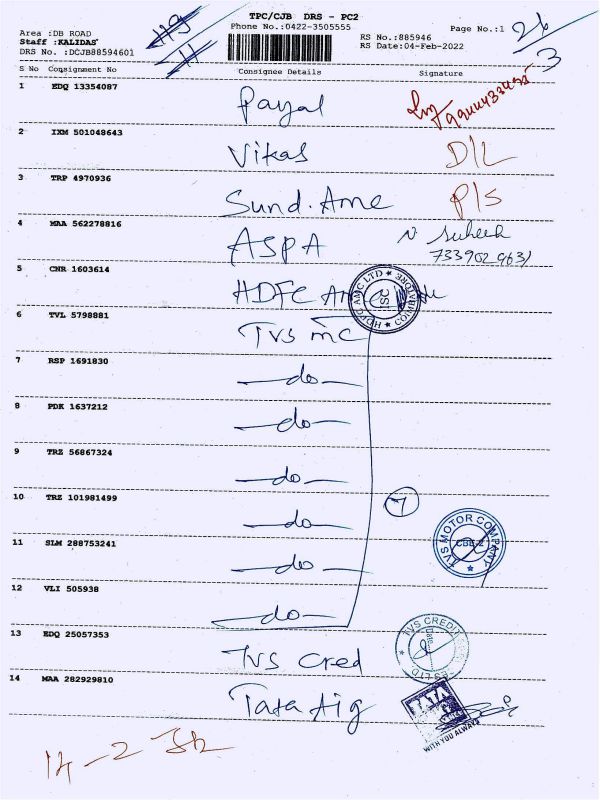 TPC/CJB DRS - PC2
Phone No.:0422-3505555
Page No.:1
26/3
Area :DB ROAD
Staff :KALIDAS
DRS No. :DCJB88594601
RS No.:885946
RS Date:04-Feb-2022
S No Consignment No Consignee Details Signature
1 EDQ 13354087 Payal
2 IXM 501048643 Vikas D/L
3 TRP 4970936 Sund. Ame P/S
4 MAA 562278816 ASPA
5 CNR 1603614 HDFC
HDFC AMC LTD ★ COIMBATORE ★
6 TVL 5798881 TVS mc
7 RSP 1691830 -do-
8 PDK 1637212 -do-
9 TRZ 56867324 -do-
10 TRZ 101981499 -do-
7
11 SLM 288753241 -do-
TVS MOTOR COMPANY
CBE-2
12 VLI 505938 -do-
13 EDQ 25057353 TVS Cred
TVS CREDIT
14 MAA 282929810 Tata Aig
TATA
WITH YOU ALWAYS